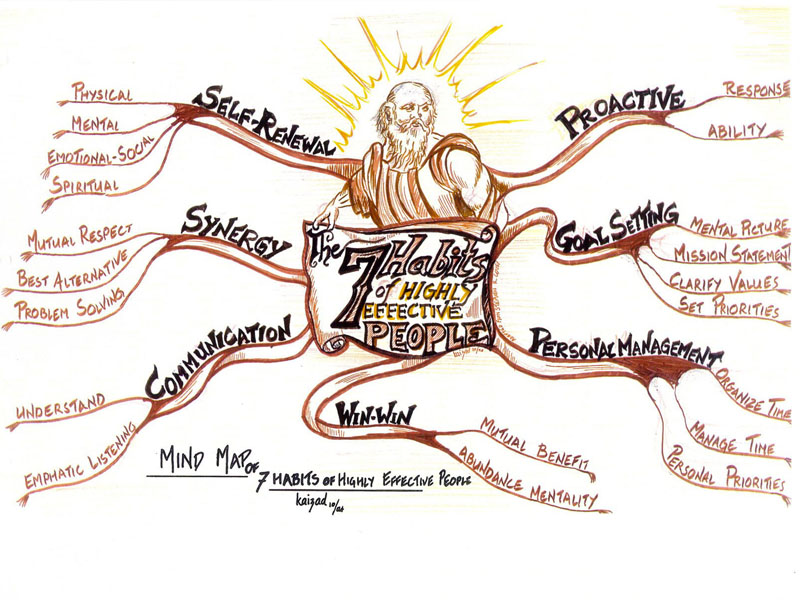 The
7 Habits
of HIGHLY
EFFECTIVE
PEOPLE
kaizad 10/04
PROACTIVE
RESPONSE
ABILITY
GOAL SETTING
MENTAL PICTURE
MISSION STATEMENT
CLARIFY VALUES
SET PRIORITIES
PERSONAL MANAGEMENT
ORGANIZE TIME
MANAGE TIME
PERSONAL PRIORITIES
WIN-WIN
MUTUAL BENEFIT
ABUNDANCE MENTALITY
COMMUNICATION
UNDERSTAND
EMPHATIC LISTENING
SYNERGY
MUTUAL RESPECT
BEST ALTERNATIVE
PROBLEM SOLVING
SELF-RENEWAL
PHYSICAL
MENTAL
EMOTIONAL-SOCIAL
SPIRITUAL
MIND MAP OF
7 HABITS OF HIGHLY EFFECTIVE PEOPLE
kaizad 10/04